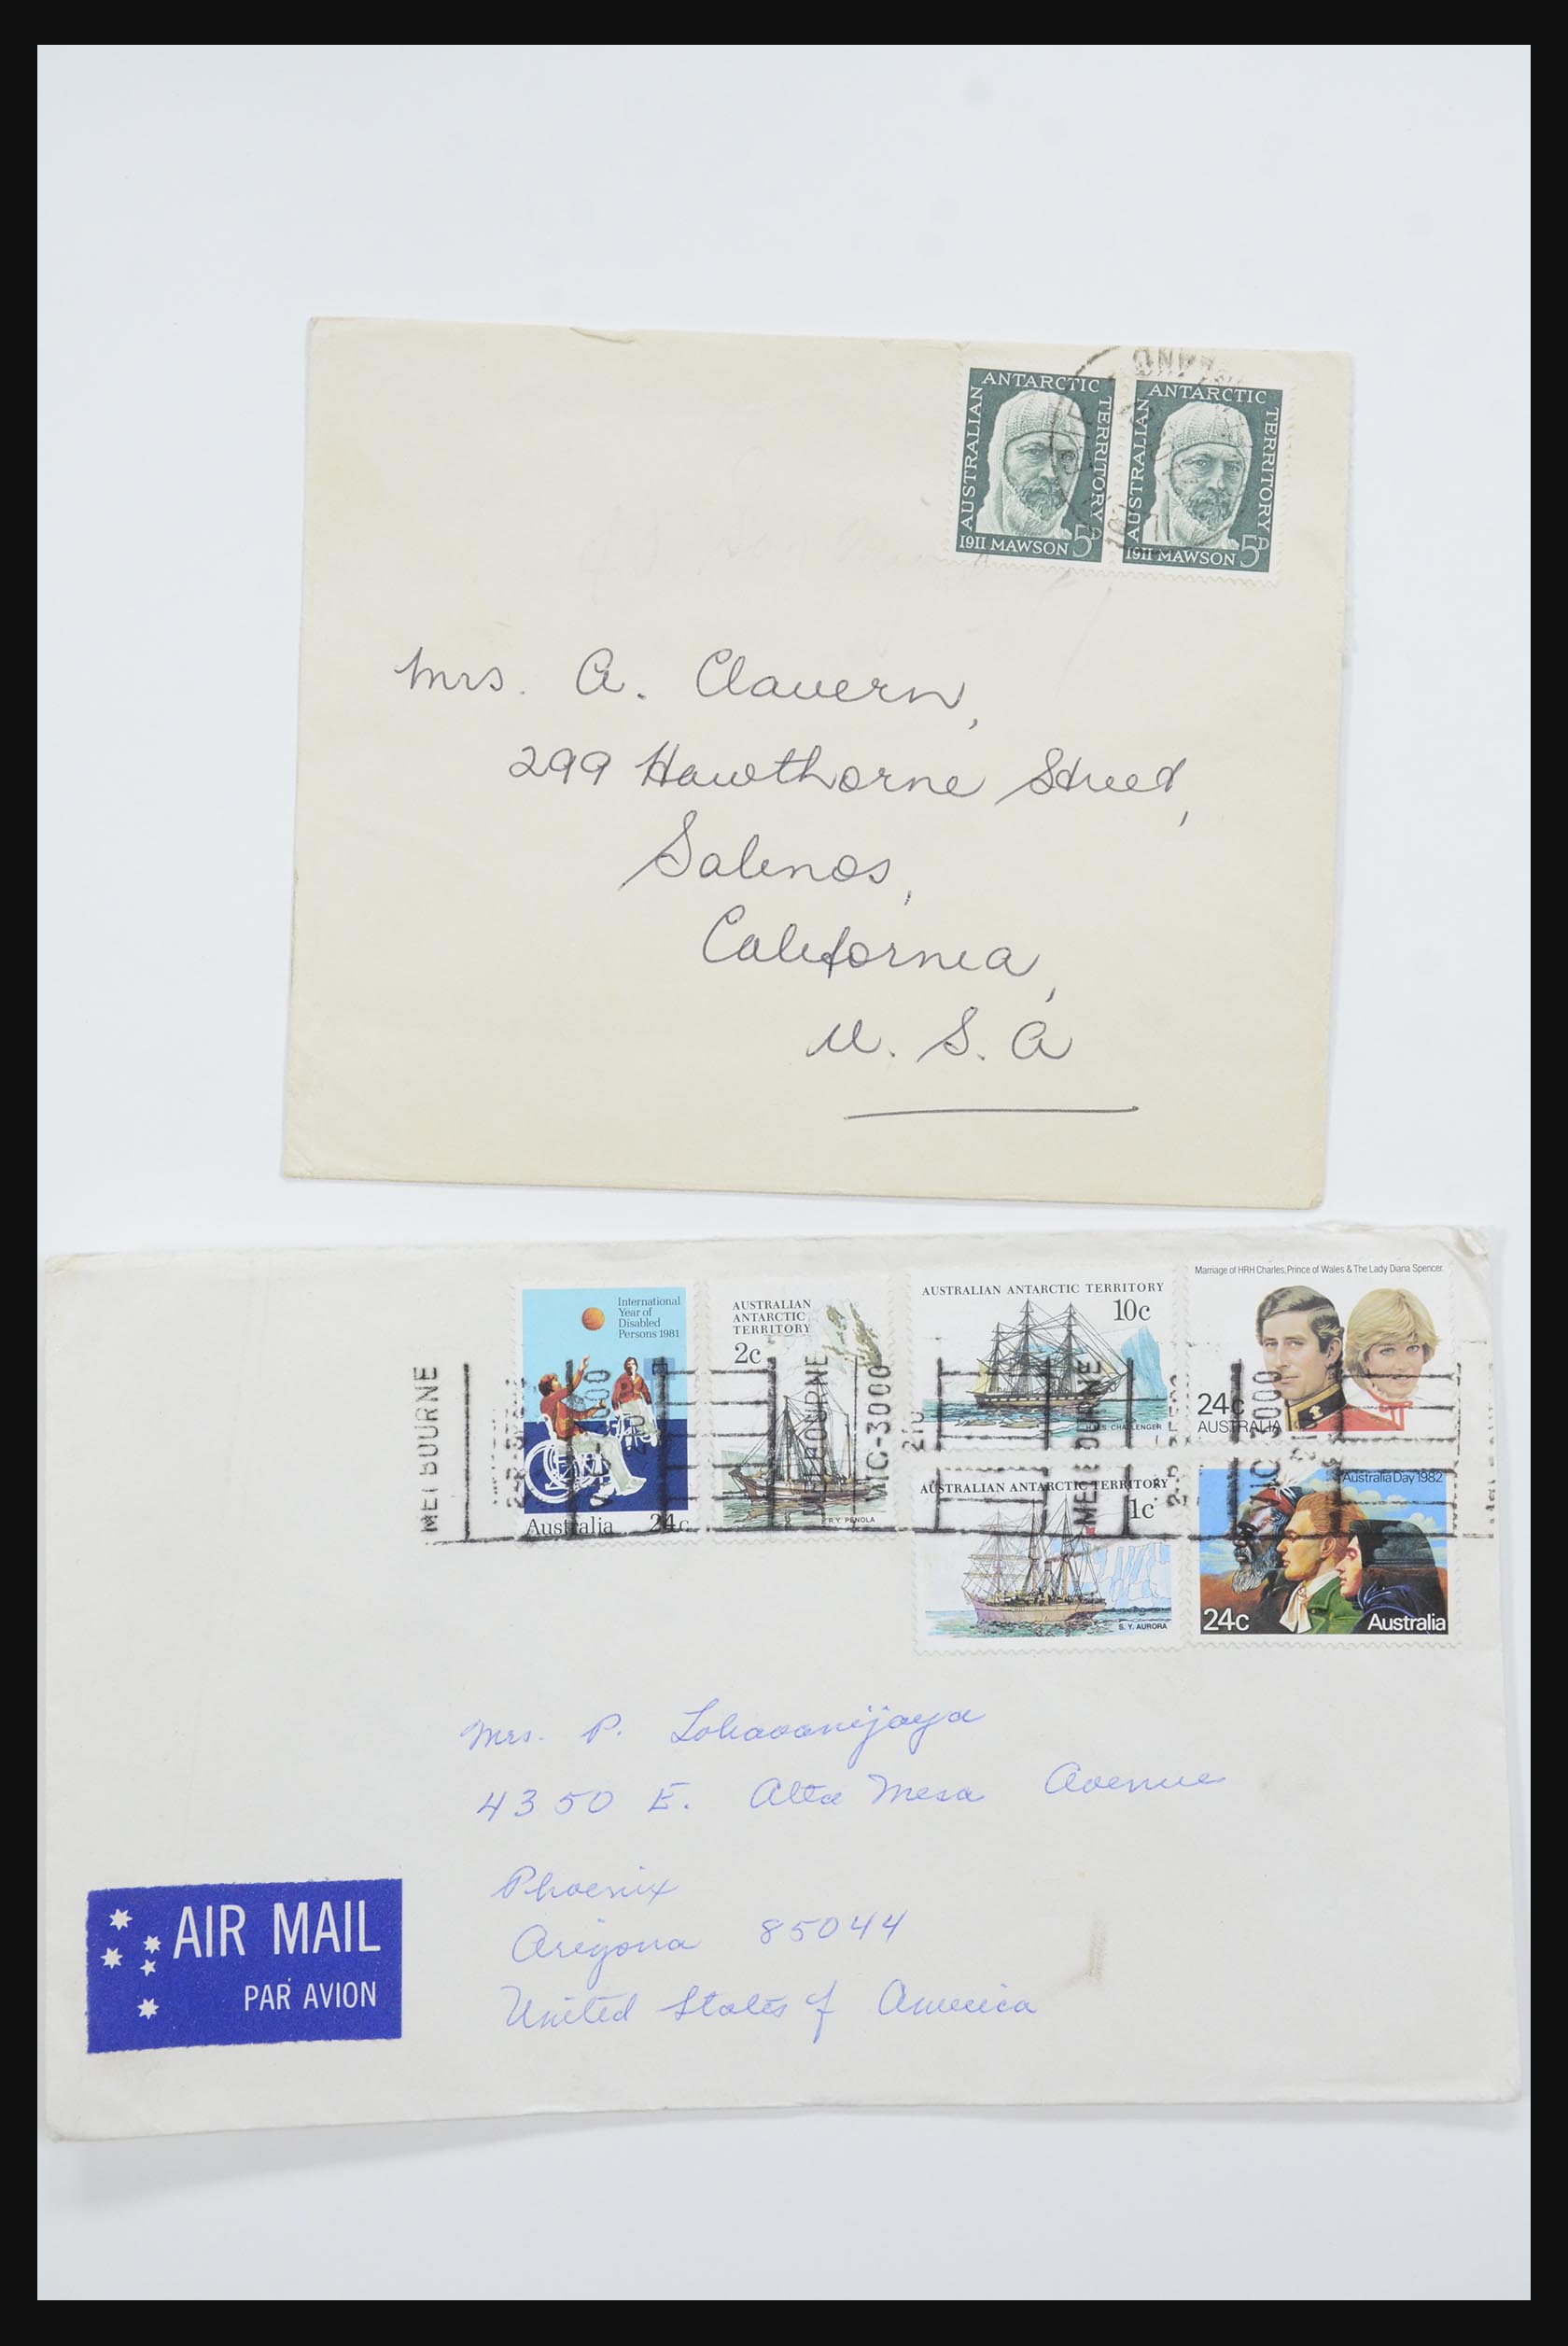 AUSTRALIAN ANTARCTIC TERRITORY
1911 MAWSON 5D
AUSTRALIAN ANTARCTIC TERRITORY
1911 MAWSON 5D
Mrs. A. Clavern,
299 Hawthorne Street,
Salinas,
California,
U. S. A
International
Year of
Disabled
Persons 1981
Australia 24c
AUSTRALIAN
ANTARCTIC
TERRITORY
2c
R.Y. PENOLA
AUSTRALIAN ANTARCTIC TERRITORY
10c
H.M.S. CHALLENGER
Marriage of HRH Charles, Prince of Wales & The Lady Diana Spencer
24c
AUSTRALIA
AUSTRALIAN ANTARCTIC TERRITORY
1c
S. Y. AURORA
Australia Day 1982
24c Australia
MELBOURNE
MELBOURNE
VIC-3000
MELBOURNE
VIC-3000
Mrs. P. Lohavanijaya
4350 E. Alta Mesa Avenue
Phoenix
Arizona 85044
United States of America
AIR MAIL
PAR AVION